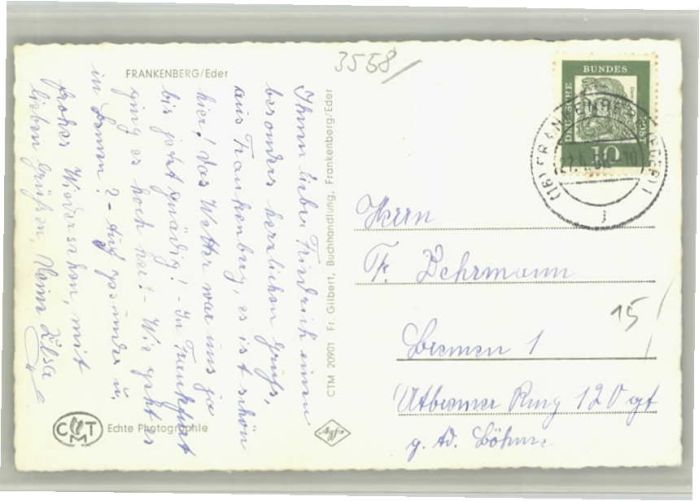 FRANKENBERG/Eder
3558
Ihnen lieber Friedrich einen
besonders herzlichen Gruß,
aus Frankenberg, es ist schön
hier! Das Wetter war uns ja
bis jetzt gnädig! - In Frankfurt
ging es hoch her! - Wie geht es
in Bremen? - Auf gesundes u.
frohes Wiedersehen, mit
lieben Grüßen, Deine Elsa
CTM 20901 Fr. Gilbert, Buchhandlung, Frankenberg/Eder
DEUTSCHE BUNDESPOST
10
(16) FRANKENBERG (EDER)
j
Herrn
F. Dehrmann
Bremen 1
Utbremer Ring 120 gf
g. Ad. Böhme
15
CTM
Echte Photographie
Agfa